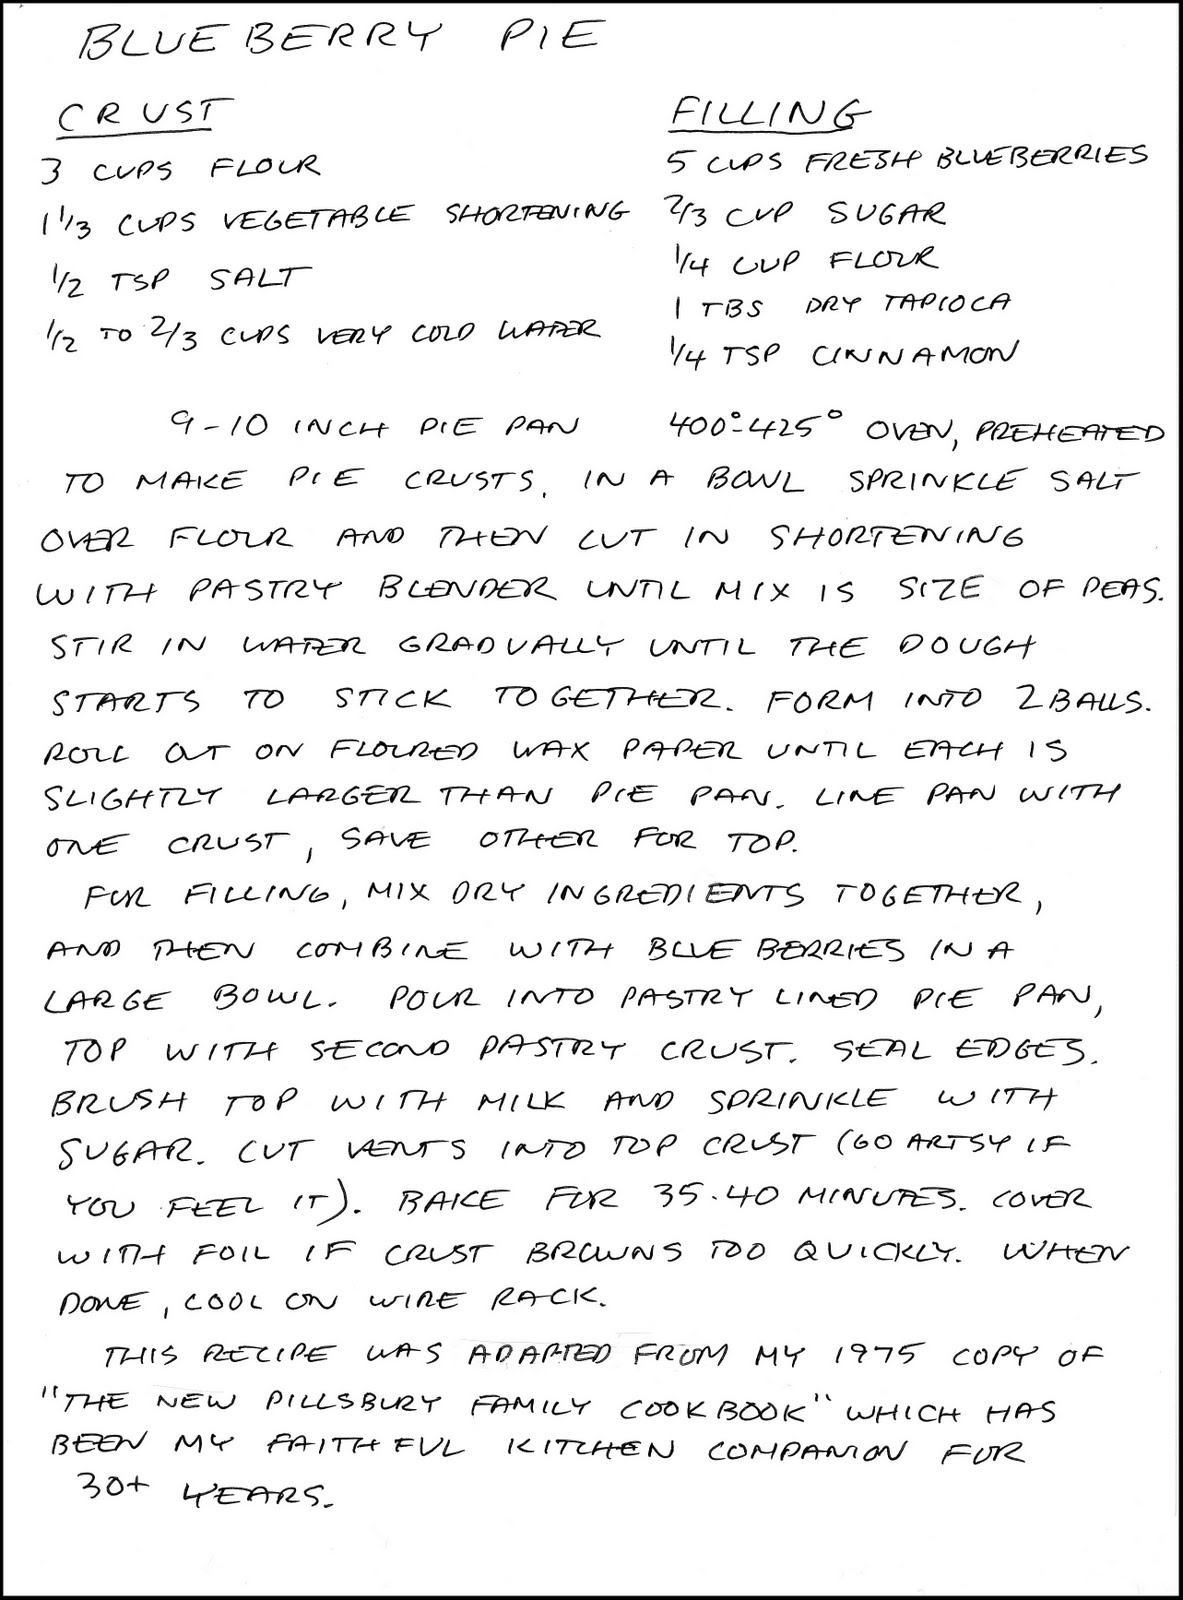 BLUEBERRY PIE
CRUST
3 CUPS FLOUR
1 1/3 CUPS VEGETABLE SHORTENING
1/2 TSP SALT
1/2 TO 2/3 CUPS VERY COLD WATER
FILLING
5 CUPS FRESH BLUEBERRIES
2/3 CUP SUGAR
1/4 CUP FLOUR
1 TBS DRY TAPIOCA
1/4 TSP CINNAMON
9-10 INCH PIE PAN 400°-425° OVEN, PREHEATED
TO MAKE PIE CRUSTS, IN A BOWL SPRINKLE SALT
OVER FLOUR AND THEN CUT IN SHORTENING
WITH PASTRY BLENDER UNTIL MIX IS SIZE OF PEAS.
STIR IN WATER GRADUALLY UNTIL THE DOUGH
STARTS TO STICK TOGETHER. FORM INTO 2 BALLS.
ROLL OUT ON FLOURED WAX PAPER UNTIL EACH IS
SLIGHTLY LARGER THAN PIE PAN. LINE PAN WITH
ONE CRUST, SAVE OTHER FOR TOP.
FOR FILLING, MIX DRY INGREDIENTS TOGETHER,
AND THEN COMBINE WITH BLUEBERRIES IN A
LARGE BOWL. POUR INTO PASTRY LINED PIE PAN,
TOP WITH SECOND PASTRY CRUST. SEAL EDGES.
BRUSH TOP WITH MILK AND SPRINKLE WITH
SUGAR. CUT VENTS INTO TOP CRUST (GO ARTSY IF
YOU FEEL IT). BAKE FOR 35-40 MINUTES. COVER
WITH FOIL IF CRUST BROWNS TOO QUICKLY. WHEN
DONE, COOL ON WIRE RACK.
THIS RECIPE WAS ADAPTED FROM MY 1975 COPY OF
"THE NEW PILLSBURY FAMILY COOKBOOK" WHICH HAS
BEEN MY FAITHFUL KITCHEN COMPANION FOR
30+ YEARS.